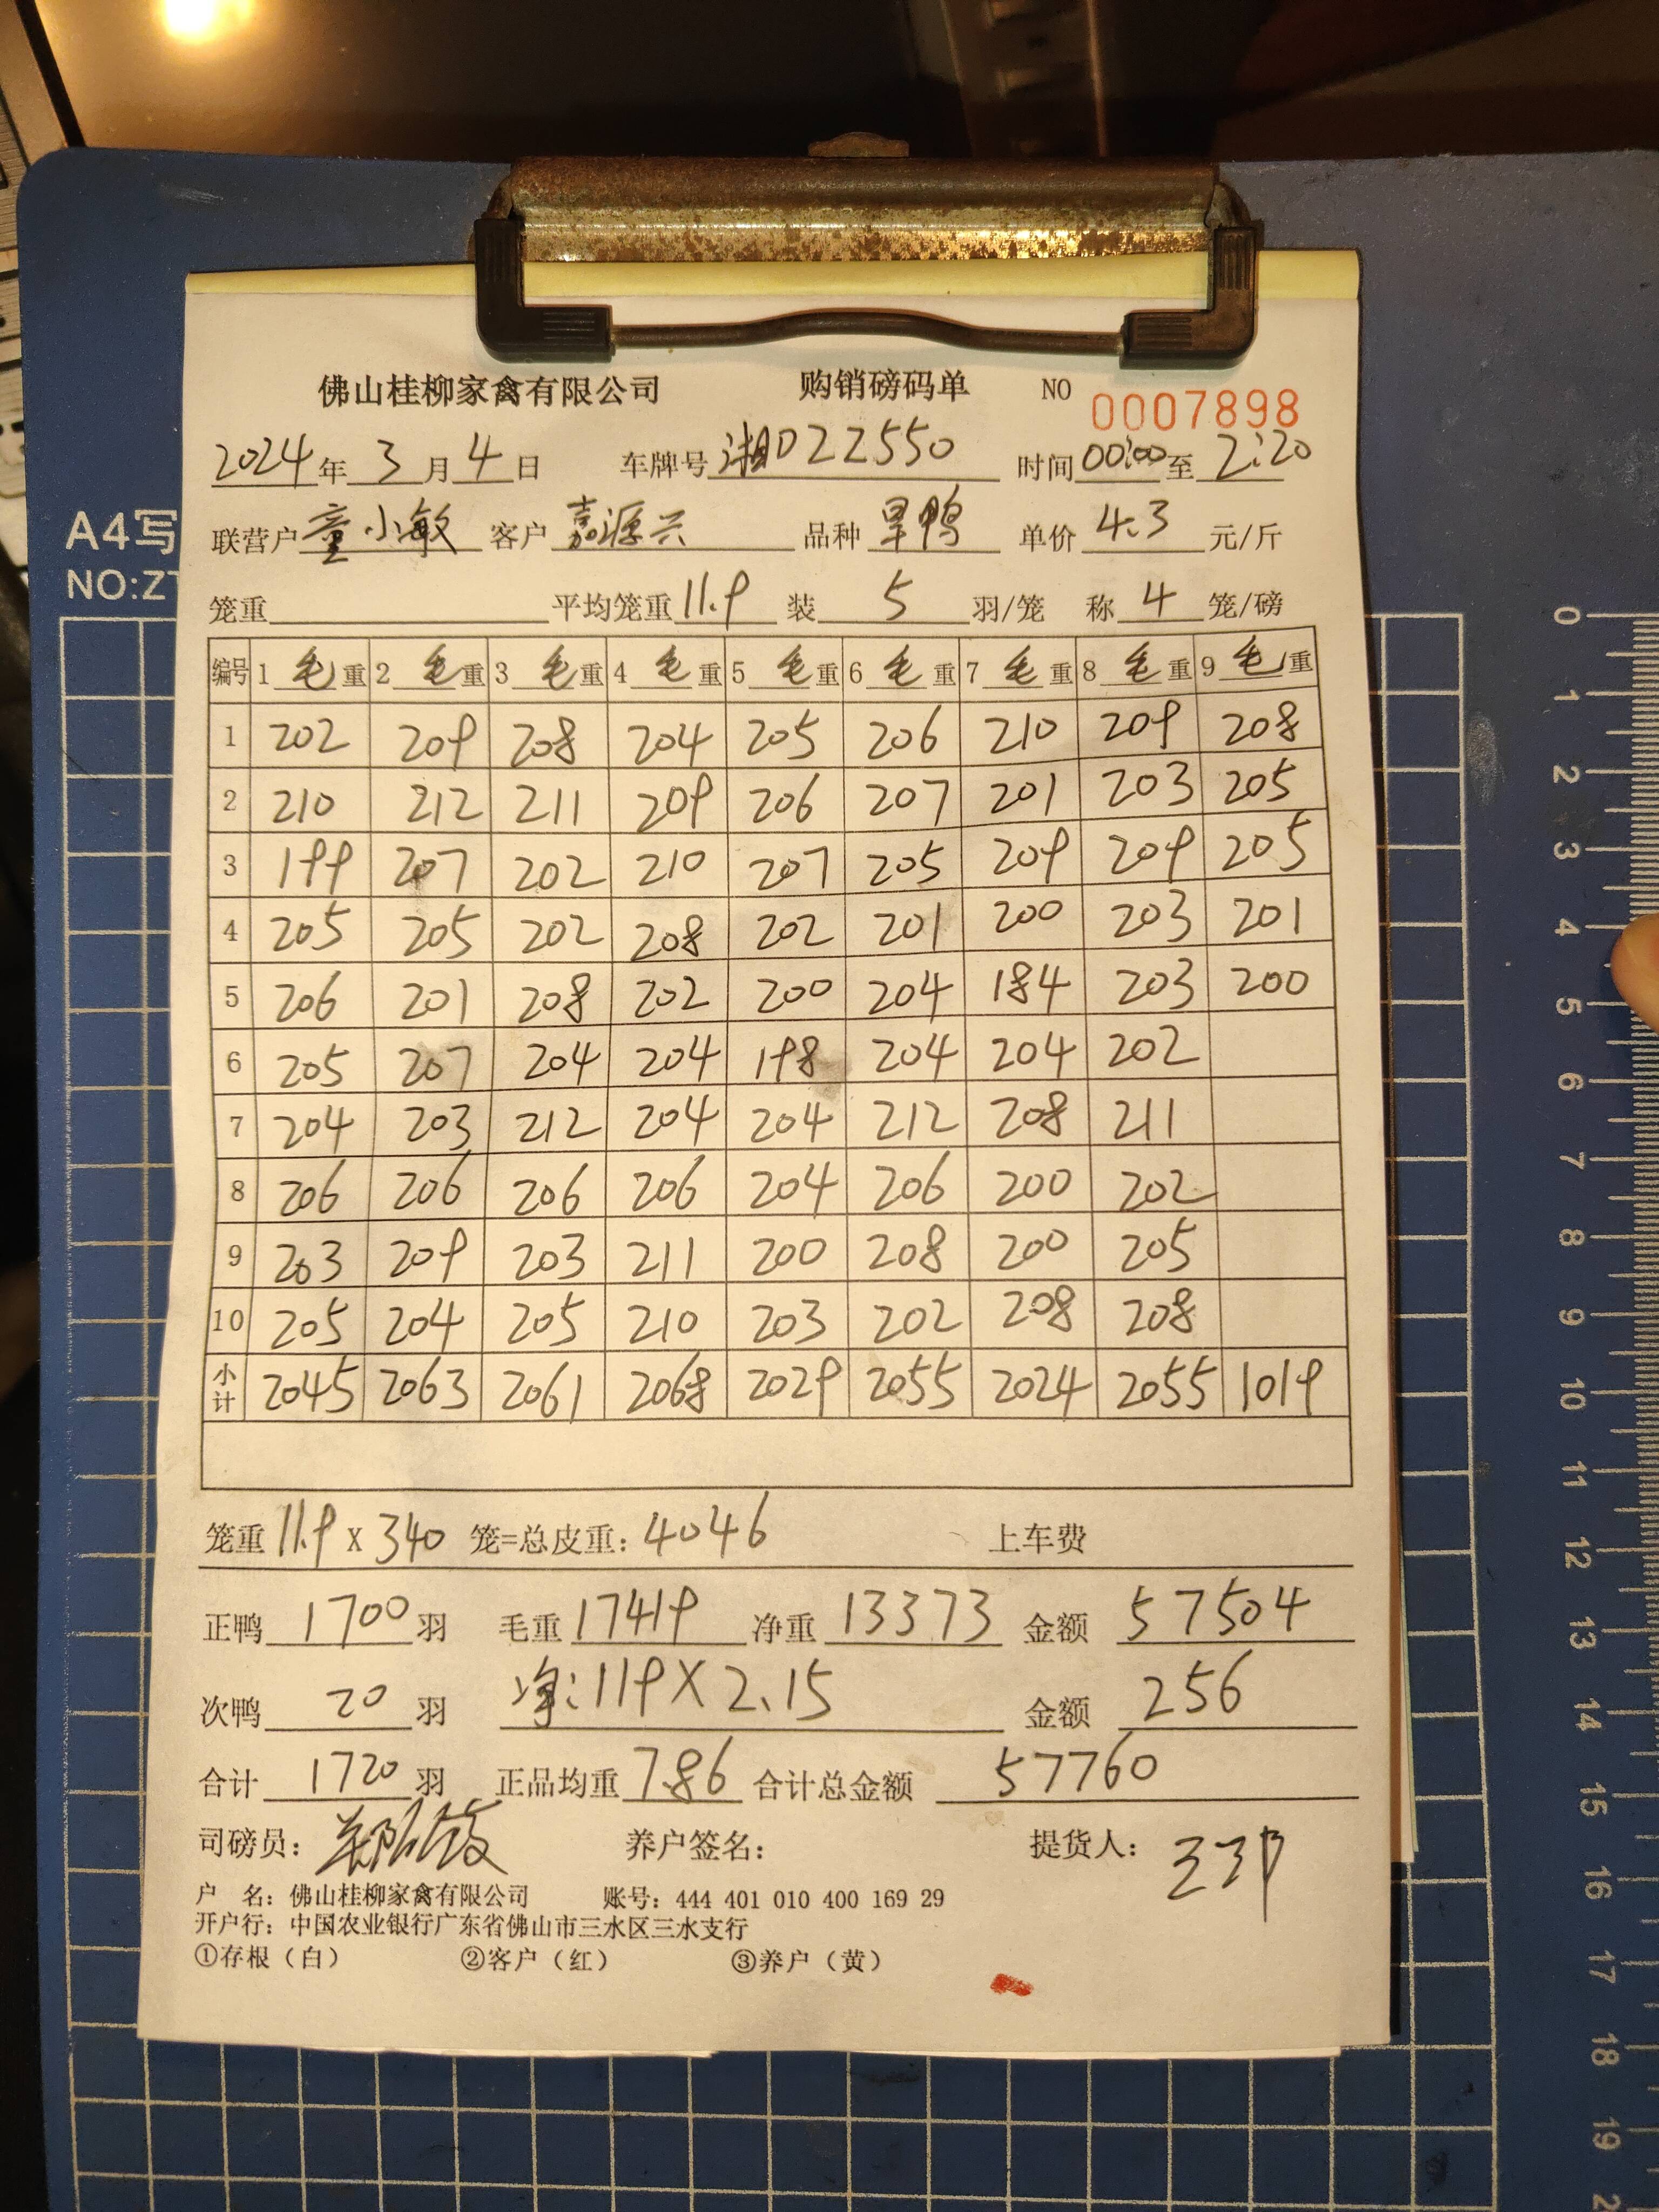 A4写
NO:ZT
佛山桂柳家禽有限公司 购销磅码单 NO 0007898
2024年3月4日 车牌号 湘D22550 时间 00:00 至 2:20
联营户 童小敏 客户 嘉源兴 品种 旱鸭 单价 4.3 元/斤
笼重 平均笼重 11.9 装 5 羽/笼 称 4 笼/磅
编号 1 毛重 2 毛重 3 毛重 4 毛重 5 毛重 6 毛重 7 毛重 8 毛重 9 毛重
1 202 209 208 204 205 206 210 209 208
2 210 212 211 209 206 207 201 203 205
3 199 207 202 210 207 205 209 209 205
4 205 205 202 208 202 201 200 203 201
5 206 201 208 202 200 204 184 203 200
6 205 207 204 204 198 204 204 202
7 204 203 212 204 204 212 208 211
8 206 206 206 206 204 206 200 202
9 203 209 203 211 200 208 200 205
10 205 204 205 210 203 202 208 208
小计 2045 2063 2061 2068 2029 2055 2024 2055 1019
笼重 11.9 X 340 笼=总皮重: 4046 上车费
正鸭 1700 羽 毛重 17419 净重 13373 金额 57504
次鸭 20 羽 净: 119 X 2.15 金额 256
合计 1720 羽 正品均重 7.86 合计总金额 57760
司磅员: 养户签名: 提货人:
户 名: 佛山桂柳家禽有限公司 账号: 444 401 010 400 169 29
开户行: 中国农业银行广东省佛山市三水区三水支行
①存根(白) ②客户(红) ③养户(黄)
0
1
2
3
4
5
6
7
8
9
10
11
12
13
14
15
16
17
18
19